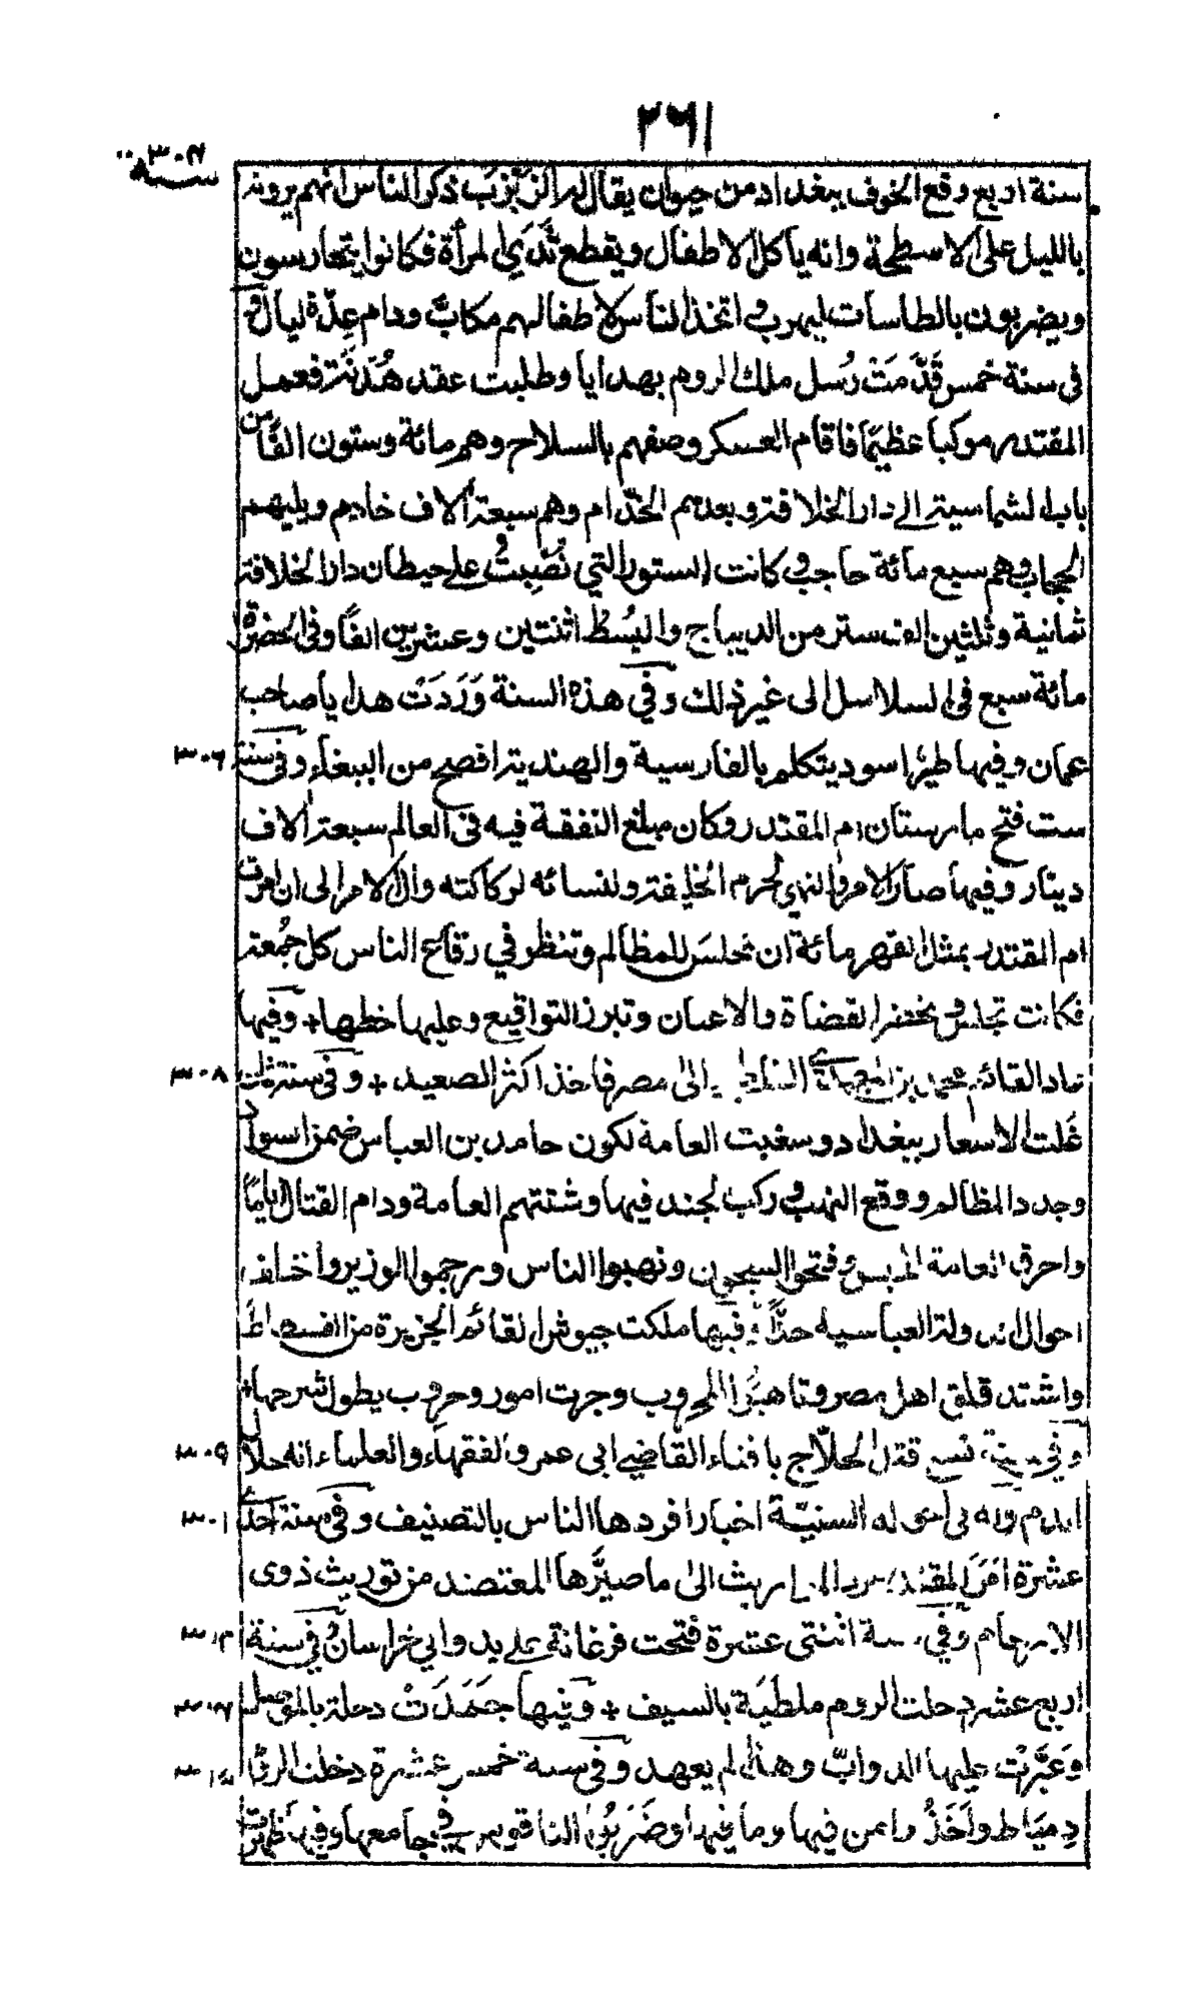 ٢٦١
سنة ٣٠٤
سنة اربع وقع الخوف ببغداد من حيوان يقال له الزَّبْزَب ذكر الناس انهم يرونه
بالليل على الاسطحة وانه ياكل الاطفال ويقطع ثَدْيَ المرأة فكانوا يتحارسون
ويضربون بالطاسات ليهرب واتخذ الناس لاطفالهم مكابَّ ودام عِدّة ليال وَ
فى سنة خمس قَدَّمَتْ رُسل ملك الروم بهدايا وطلبت عقد هُدْنَة فعمل
المقتدر موكبا عظيمًا فاقام العسكر وصفهم بالسلاح وهم مائة وستون الفًا من
باب الشماسية الى دار الخلافة وبعدهم الخدّام وهم سبعة آلاف خادم ويليهم
الحجاب وهم سبع مائة حاجب وكانت الستور التي نُصِبتُ على حيطان دار الخلافة
ثمانية وثلثين الف ستر من الديباج والبُسُط اثنتين وعشرين الفًا وفى الحضرة
مائة سبع فى السلاسل الى غير ذلك وفي هذه السنة وَرَدَتْ هدايا صاحب
عمان وفيها طير اسود يتكلم بالفارسية والهندية افصح من الببغاء وفى سنة
٣٠٦
ست فتح مارستان ام المقتدر وكان مبلغ النفقة فيه فى العالم سبعة آلاف
دينار وفيها صار الامر والنهي لحرم الخليفة ولنسائه لركاكته وآل الامر الى ان امرت
ام المقتدر بمثل القهرمانة ان تجلسَ للمظالم وتنظر في رقاع الناس كل جُمعة
فكانت تجلس وتحضر القضاة والاعيان وتبرز التواقيع وعليها خطها + وفيها
عاد القائم محمد بن المهدي الى مصر فاخذ اكثر الصعيد + وفى سنة ثمان
٣٠٨
غَلت الاسعار ببغداد وسغبت العامة لكون حامد بن العباس ضمن السواد
وجدد المظالم ووقع النهب وركب الجند فيها وشتتهم العامة ودام القتال اياماً
واحرق العامة الحبس وفتحوا السجون ونهبوا الناس ورجموا الوزير واختلف
احوال الدولة العباسية جدًّا وفيها ملكت جيوش القائم الجزيرة من الفسطاط
واشتد قلق اهل مصر وتاهبوا للحروب وجرت امور وحروب يطول شرحها +
وفي سنة تسع قتل الحلاّج بافتاء القاضي ابى عمر والفقهاء والعلماء انه حلال
٣٠٩
الدم وله فى احواله السنيّة اخبار افردها الناس بالتصنيف وفي سنة احدى
٣٠١
عشرة امَرَ المقتدر برد المواريث الى ما صيَّرها المعتضد من توريث ذوى
الارحام وفي سنة اثنتى عشرة فتحت فرغانة على يد والي خراسان وفي سنة
اربع عشرة دخلت الروم ملطيَة بالسيف + وفيها جَمَدَتْ دجلة بالموصل
وَعَبَرْت عليها الدوابّ وهذا لم يعهد وفى سنة خمس عشرة دخلت الروم
دِميَاط وأَخَذُوا من فيها وما فيها وضَرَبُوا الناقوس في جامعها وفيها ظهرت